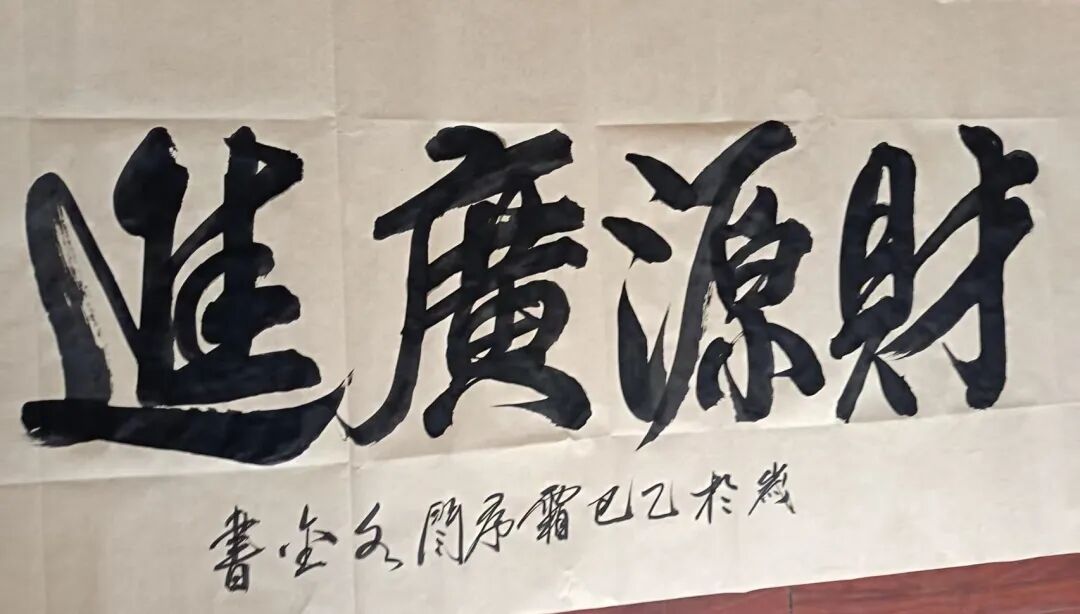 財源廣進
歲於乙巳霜序閆文金書